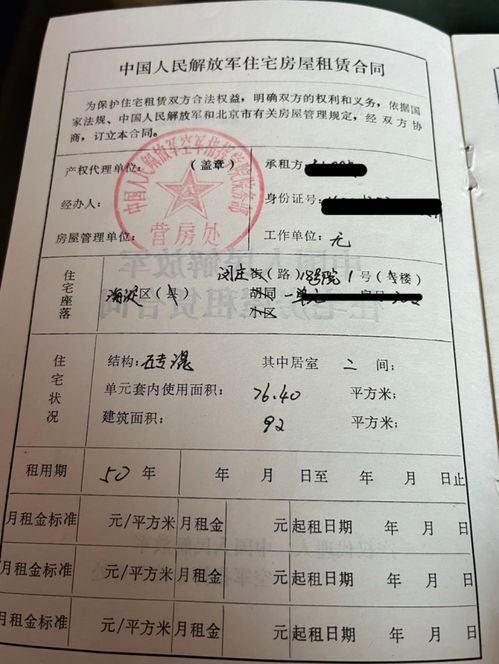 中国人民解放军住宅房屋租赁合同
为保护住宅租赁双方合法权益，明确双方的权利和义务，依据国
家法规、中国人民解放军和北京市有关房屋管理规定，经双方协
商，订立本合同。
产权代理单位： （盖章） 承租方：
经办人： 身份证号：
房屋管理单位： 工作单位： 无
营房处
住宅座落 海淀区（县） 闵庄街（路）18号院1号（楼）
胡同
小区
住宅状况 结构：砖混 其中居室 二 间；
单元套内使用面积： 76.40 平方米；
建筑面积： 92 平方米；
租用期 50 年 年 月 日至 年 月 日止
月租金标准 元/平方米 月租金 元 起租日期 年 月 日
月租金标准 元/平方米 月租金 元 起租日期 年 月 日
月租金标准 元/平方米 月租金 元 起租日期 年 月 日